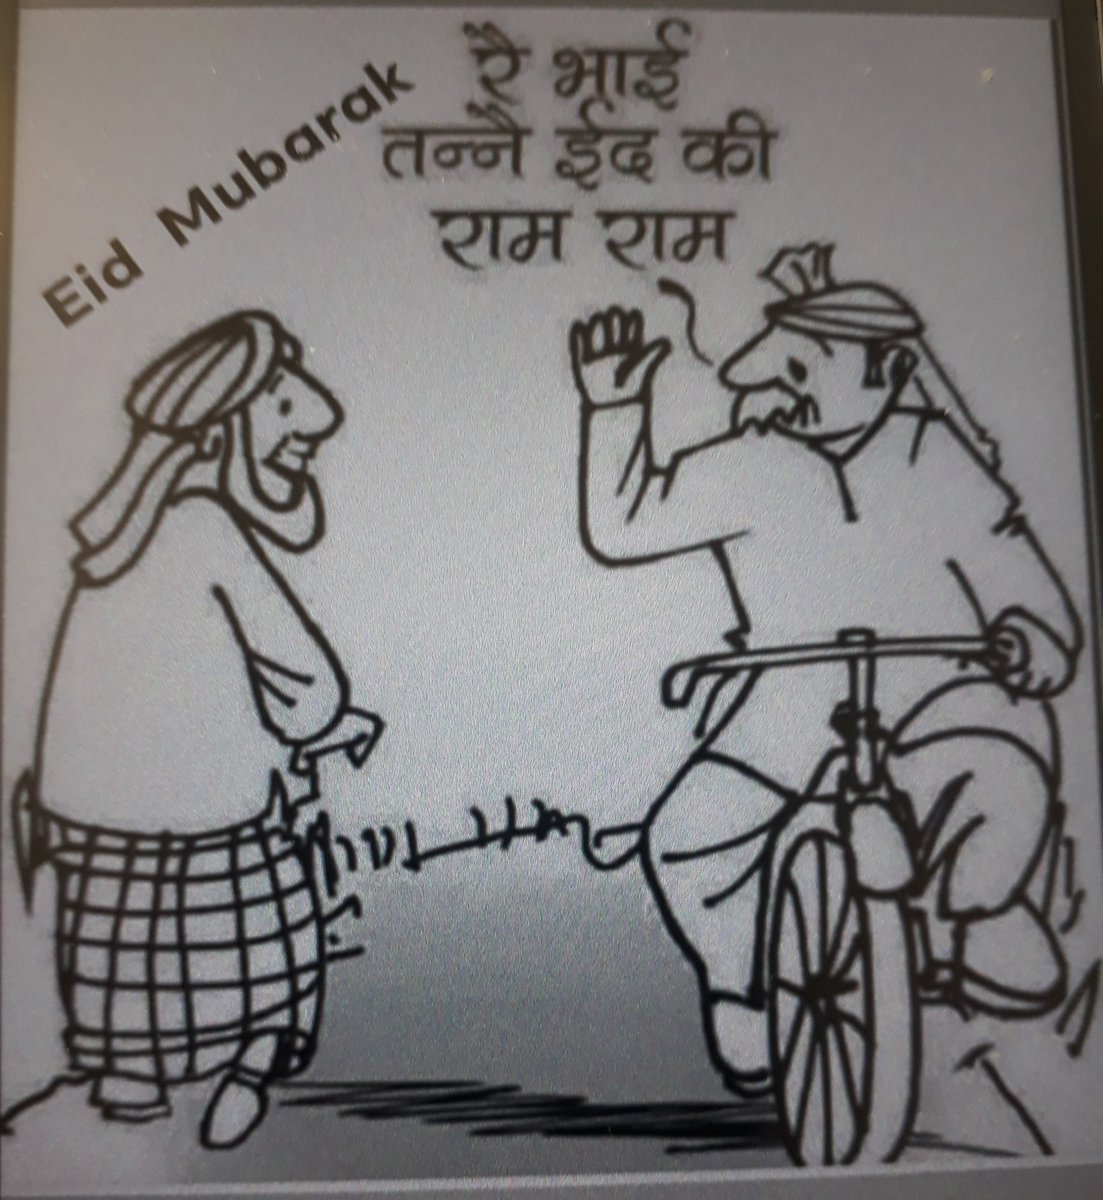 Eid Mubarak
रै भाई
तन्नै ईद की
राम राम